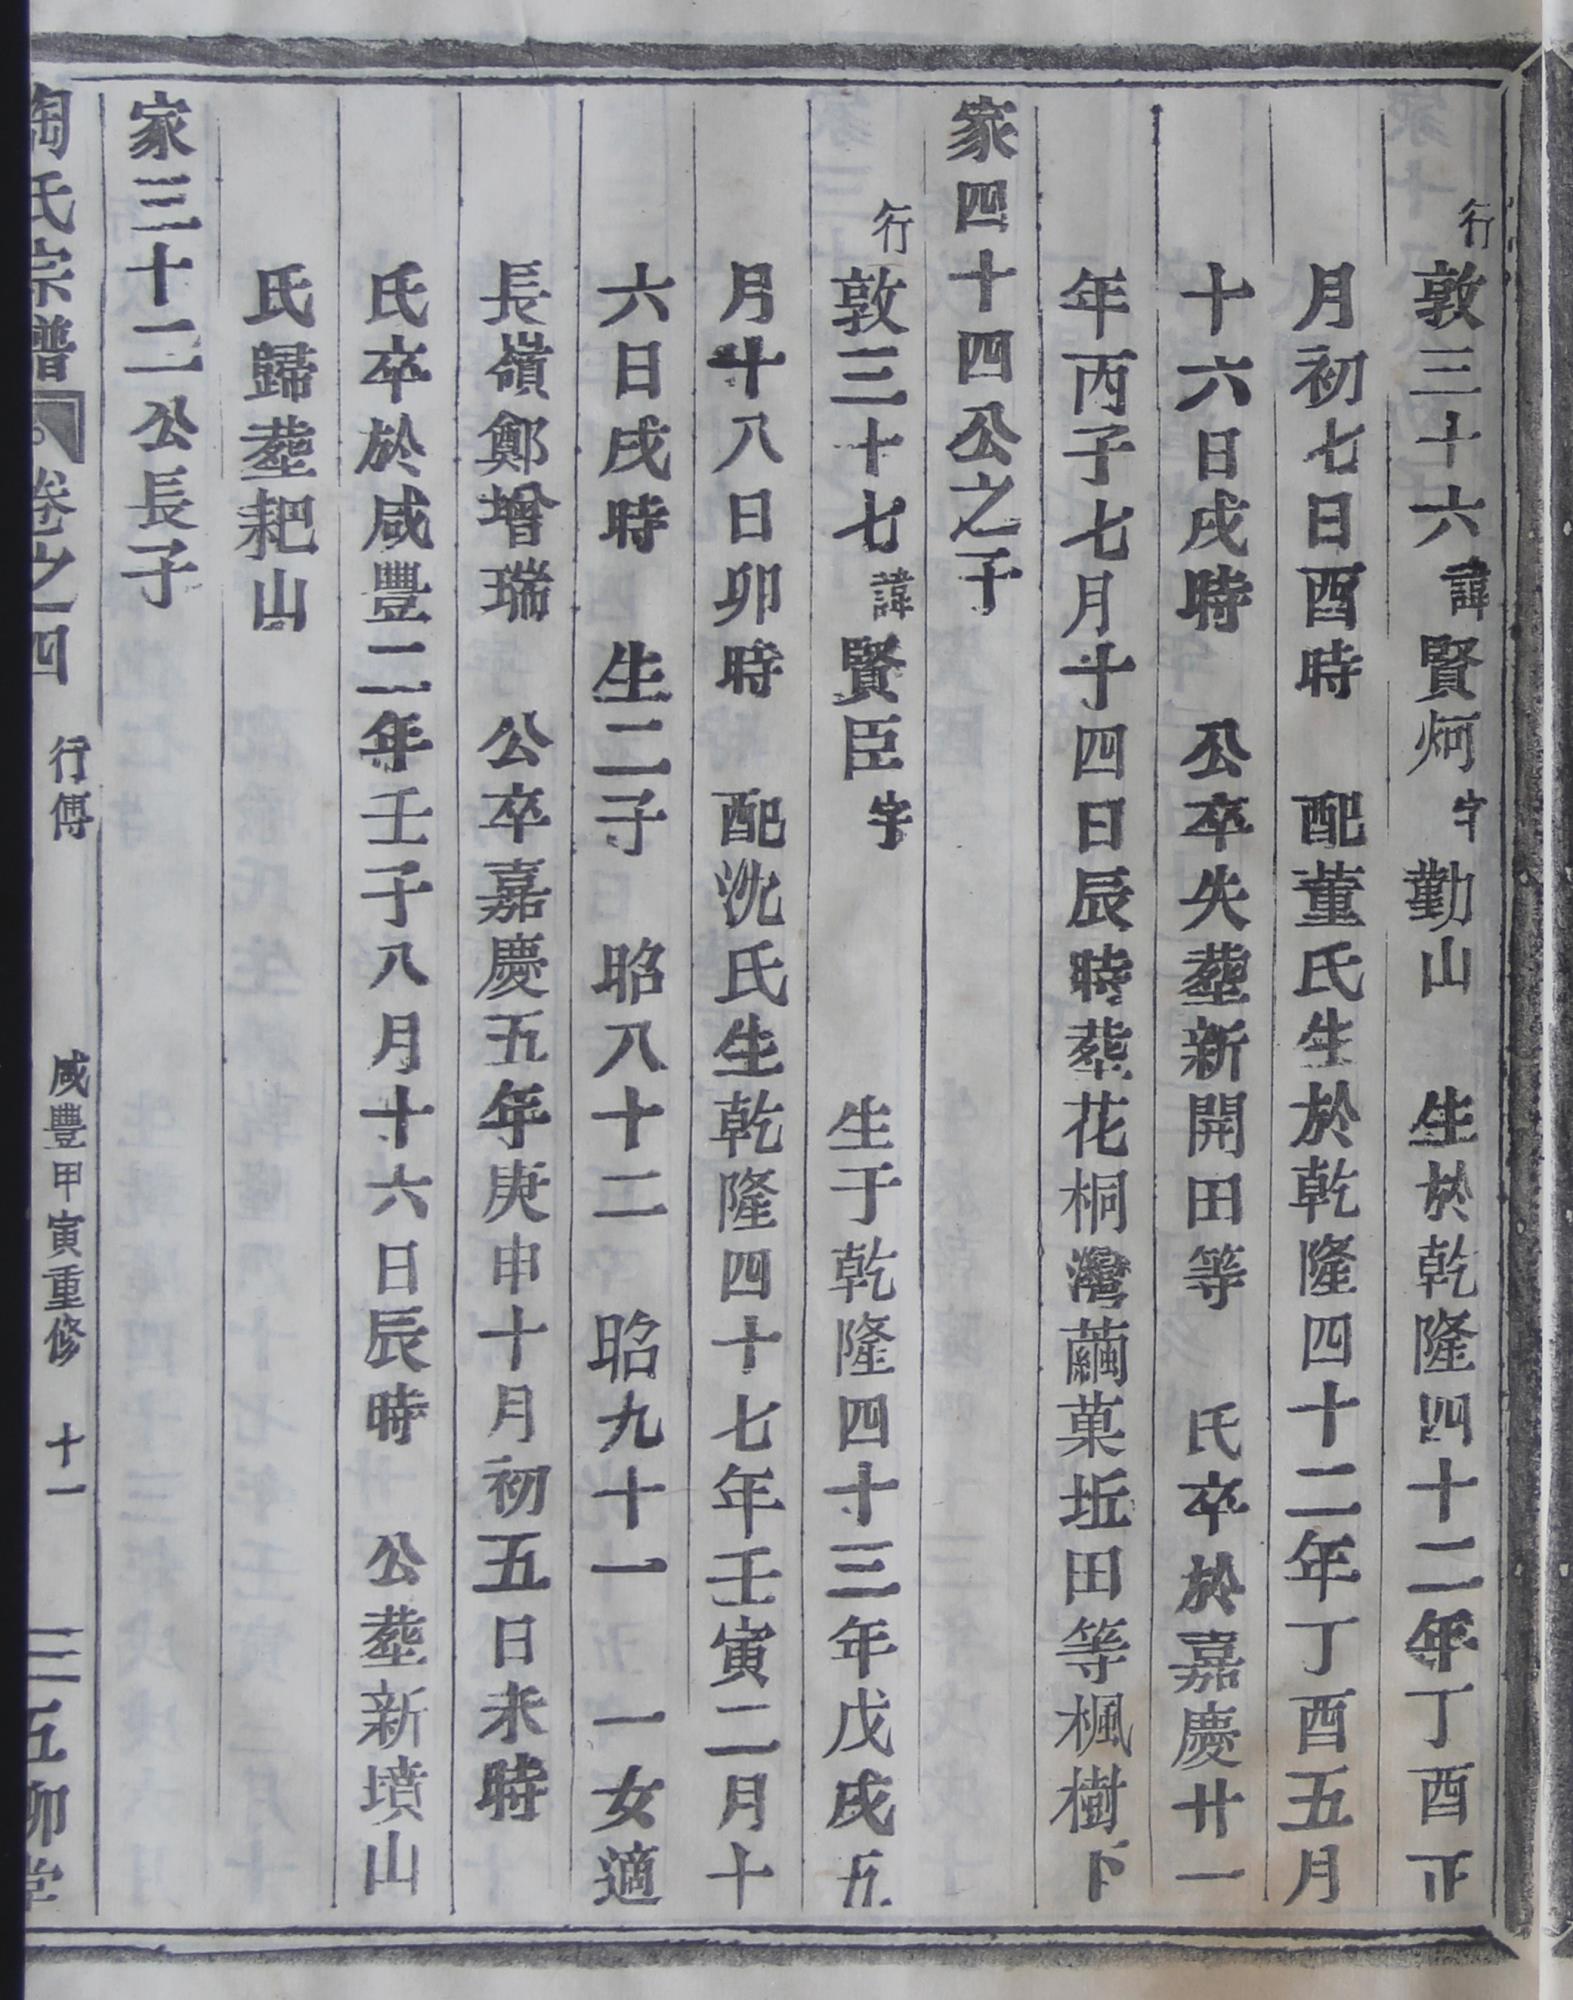 行敦三十六諱賢炣字勤山 生於乾隆四十二年丁酉正
月初七日酉時 配董氏生於乾隆四十二年丁酉五月
十六日戌時 公卒失塟新開田等 氏卒於嘉慶廿一
年丙子七月十四日辰時塟花桐灣繭菓坵田等楓樹下
家四十四公之子
行敦三十七諱賢臣字 生于乾隆四十三年戊戌五
月十八日卯時 配沈氏生乾隆四十七年壬寅二月十
六日戌時 生二子 昭八十二 昭九十一 一女適
長嶺鄭增瑞 公卒嘉慶五年庚申十月初五日未時
氏卒於咸豐二年壬子八月十六日辰時 公塟新墳山
氏歸塟耙山
家三十二公長子
陶氏宗譜 卷之四 行傳 咸豐甲寅重修 十一 三五柳堂